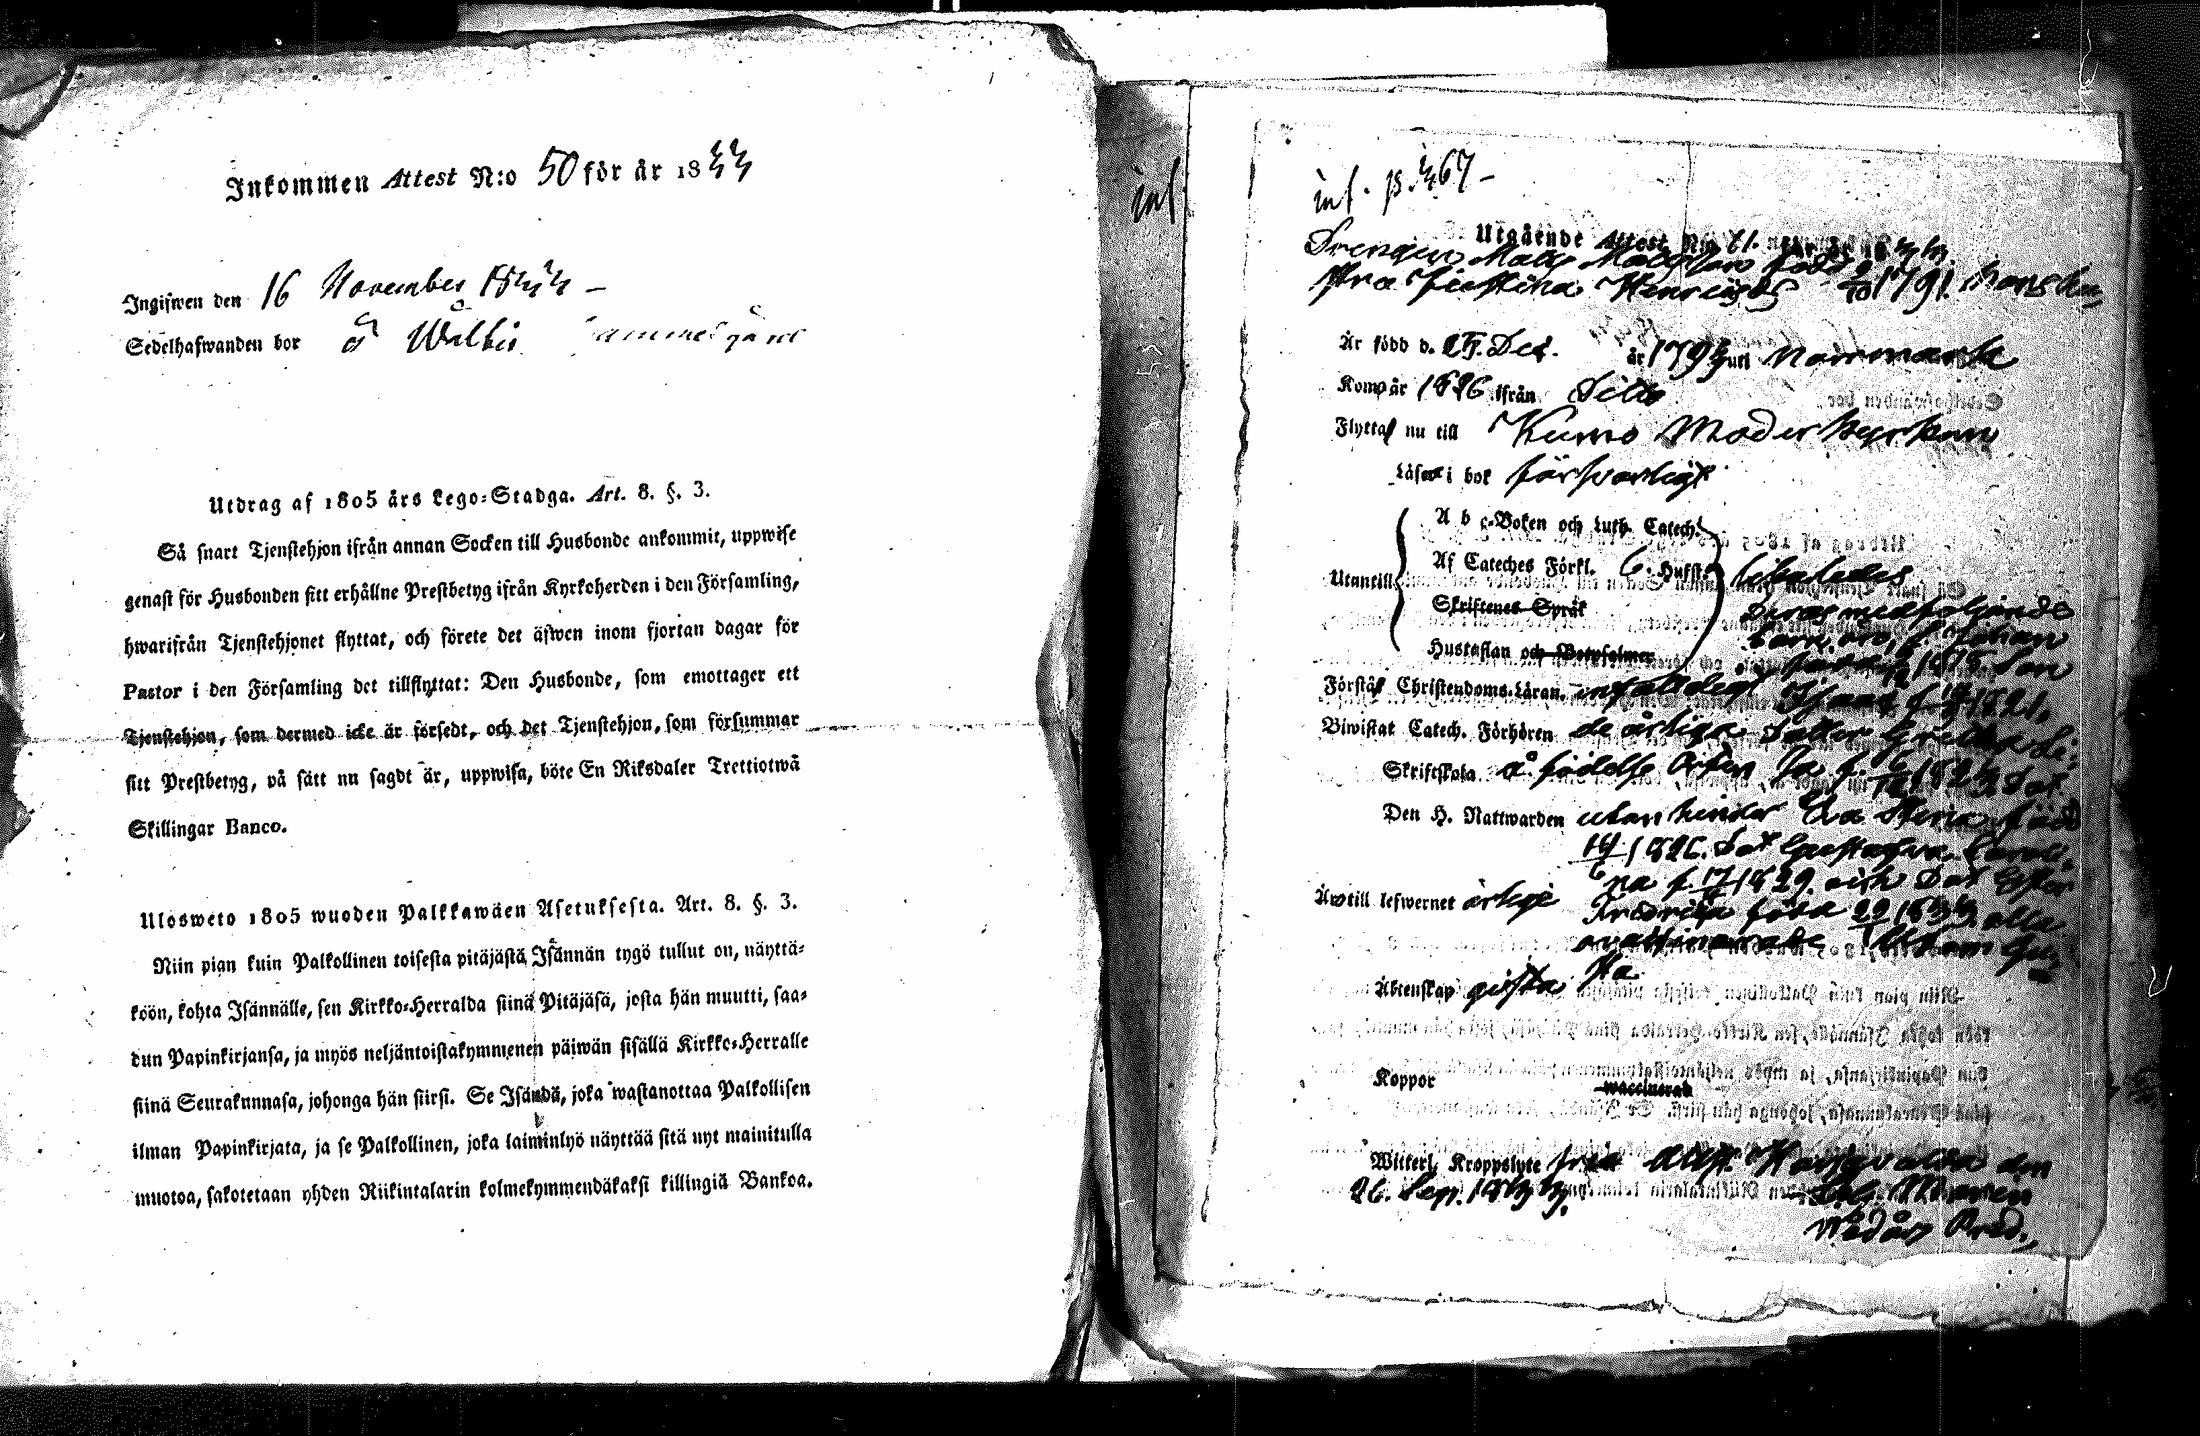 Inkommen Attest N:o 50 för år 1844
Ingifwen den 16 November 1844 –
Sedelhafwanden bor å Wälbi
Utdrag af 1805 års Lego-Stadga. Art. 8. §. 3.
Så snart Tjenstehjon ifrån annan Socken till Husbonde ankommit, uppwise
genast för Husbonden sitt erhållne Prestbetyg ifrån Kyrkoherden i den Församling,
hwarifrån Tjenstehjonet flyttat, och förete det äfwen inom fjortan dagar för
Pastor i den Församling det tillflyttat: Den Husbonde, som emottager ett
Tjenstehjon, som dermed icke är försedt, och det Tjenstehjon, som försummar
sitt Prestbetyg, på sätt nu sagdt är, uppwisa, böte En Riksdaler Trettiotwå
Skillingar Banco.
Ulosweto 1805 wuoden Palkkawäen Asetuksesta. Art. 8. §. 3.
Niin pian kuin Palkollinen toisesta pitäjästä Isännän tygö tullut on, näyttä-
köön, kohta Isännälle, sen Kirkko-Herralda siinä Pitäjäsä, josta hän muutti, saa-
dun Papinkirjansa, ja myös neljäntoistakymmenen päiwän sisällä Kirkko-Herralle
siinä Seurakunnasa, johonga hän siirsi. Se Isändä, joka wastanottaa Palkollisen
ilman Papinkirjata, ja se Palkollinen, joka laiminlyö näyttää sitä nyt mainitulla
muotoa, sakotetaan yhden Riikintalarin kolmekymmendäkaksi killingiä Bankoa.
inf
inf. p. 467 –
Utgående Attest N:o 61. för år 1844
Drengen Matts Mattsson född
Henricsdr 1791. hans hu,
Är född d. 24. Dec. år 1794 uti Norrmark
Kom år 1826 ifrån Dito
Flyttas nu till Kumo Moder kyrkan
Läser i bok försvarligt
Utantill A b c-Boken och Luth. Catech.
Af Cateches Förkl. 6. Hufst. likaledes
Skriftenes Språk deras medföljande
Hustaflan och Botpsalmer barn äro, f. Johan
Förstår Christendoms-Läran. enfaldigt Isaac f. 1821.
Biwistat Catech. Förhören de årlige Dotter Gretha Li-
Skriftskola å födelse Orten sa f. 1824 Dot
Den H. Nattwarden utan hinder Eva Stina född
1826. Dot Gustafva Caroli,
Är till lefwernet ärlige na f. 17 1829. och Dot Ester
Fredrika född 29 1844 alla
Äktenskap gifta
Koppor waccinerad
Witterl. Kroppslyte fria den
26. Sep. 1844.